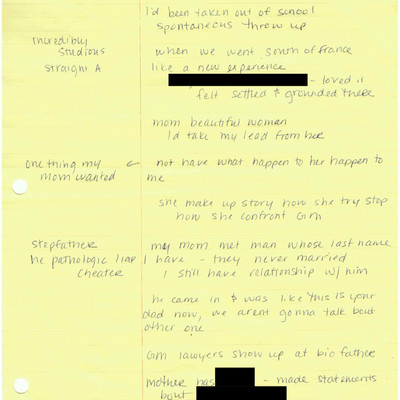 I'd been taken out of school
spontaneous throw up
Incredibly
studious
straight A
when we went south of france
like a new experience
- loved it
felt settled & grounded there
mom beautiful woman
I'd take my lead from her
one thing my
mom wanted
← not have what happen to her happen to
me
she make up story how she try stop
how she confront GM
stepfather
he pathologic liar
cheater
my mom met man whose last name
I have - they never married
I still have relationship w/ him
he came in & was like this is your
dad now, we arent gonna talk bout
other one
GM lawyers show up at bio father
mother has
- made statements
bout